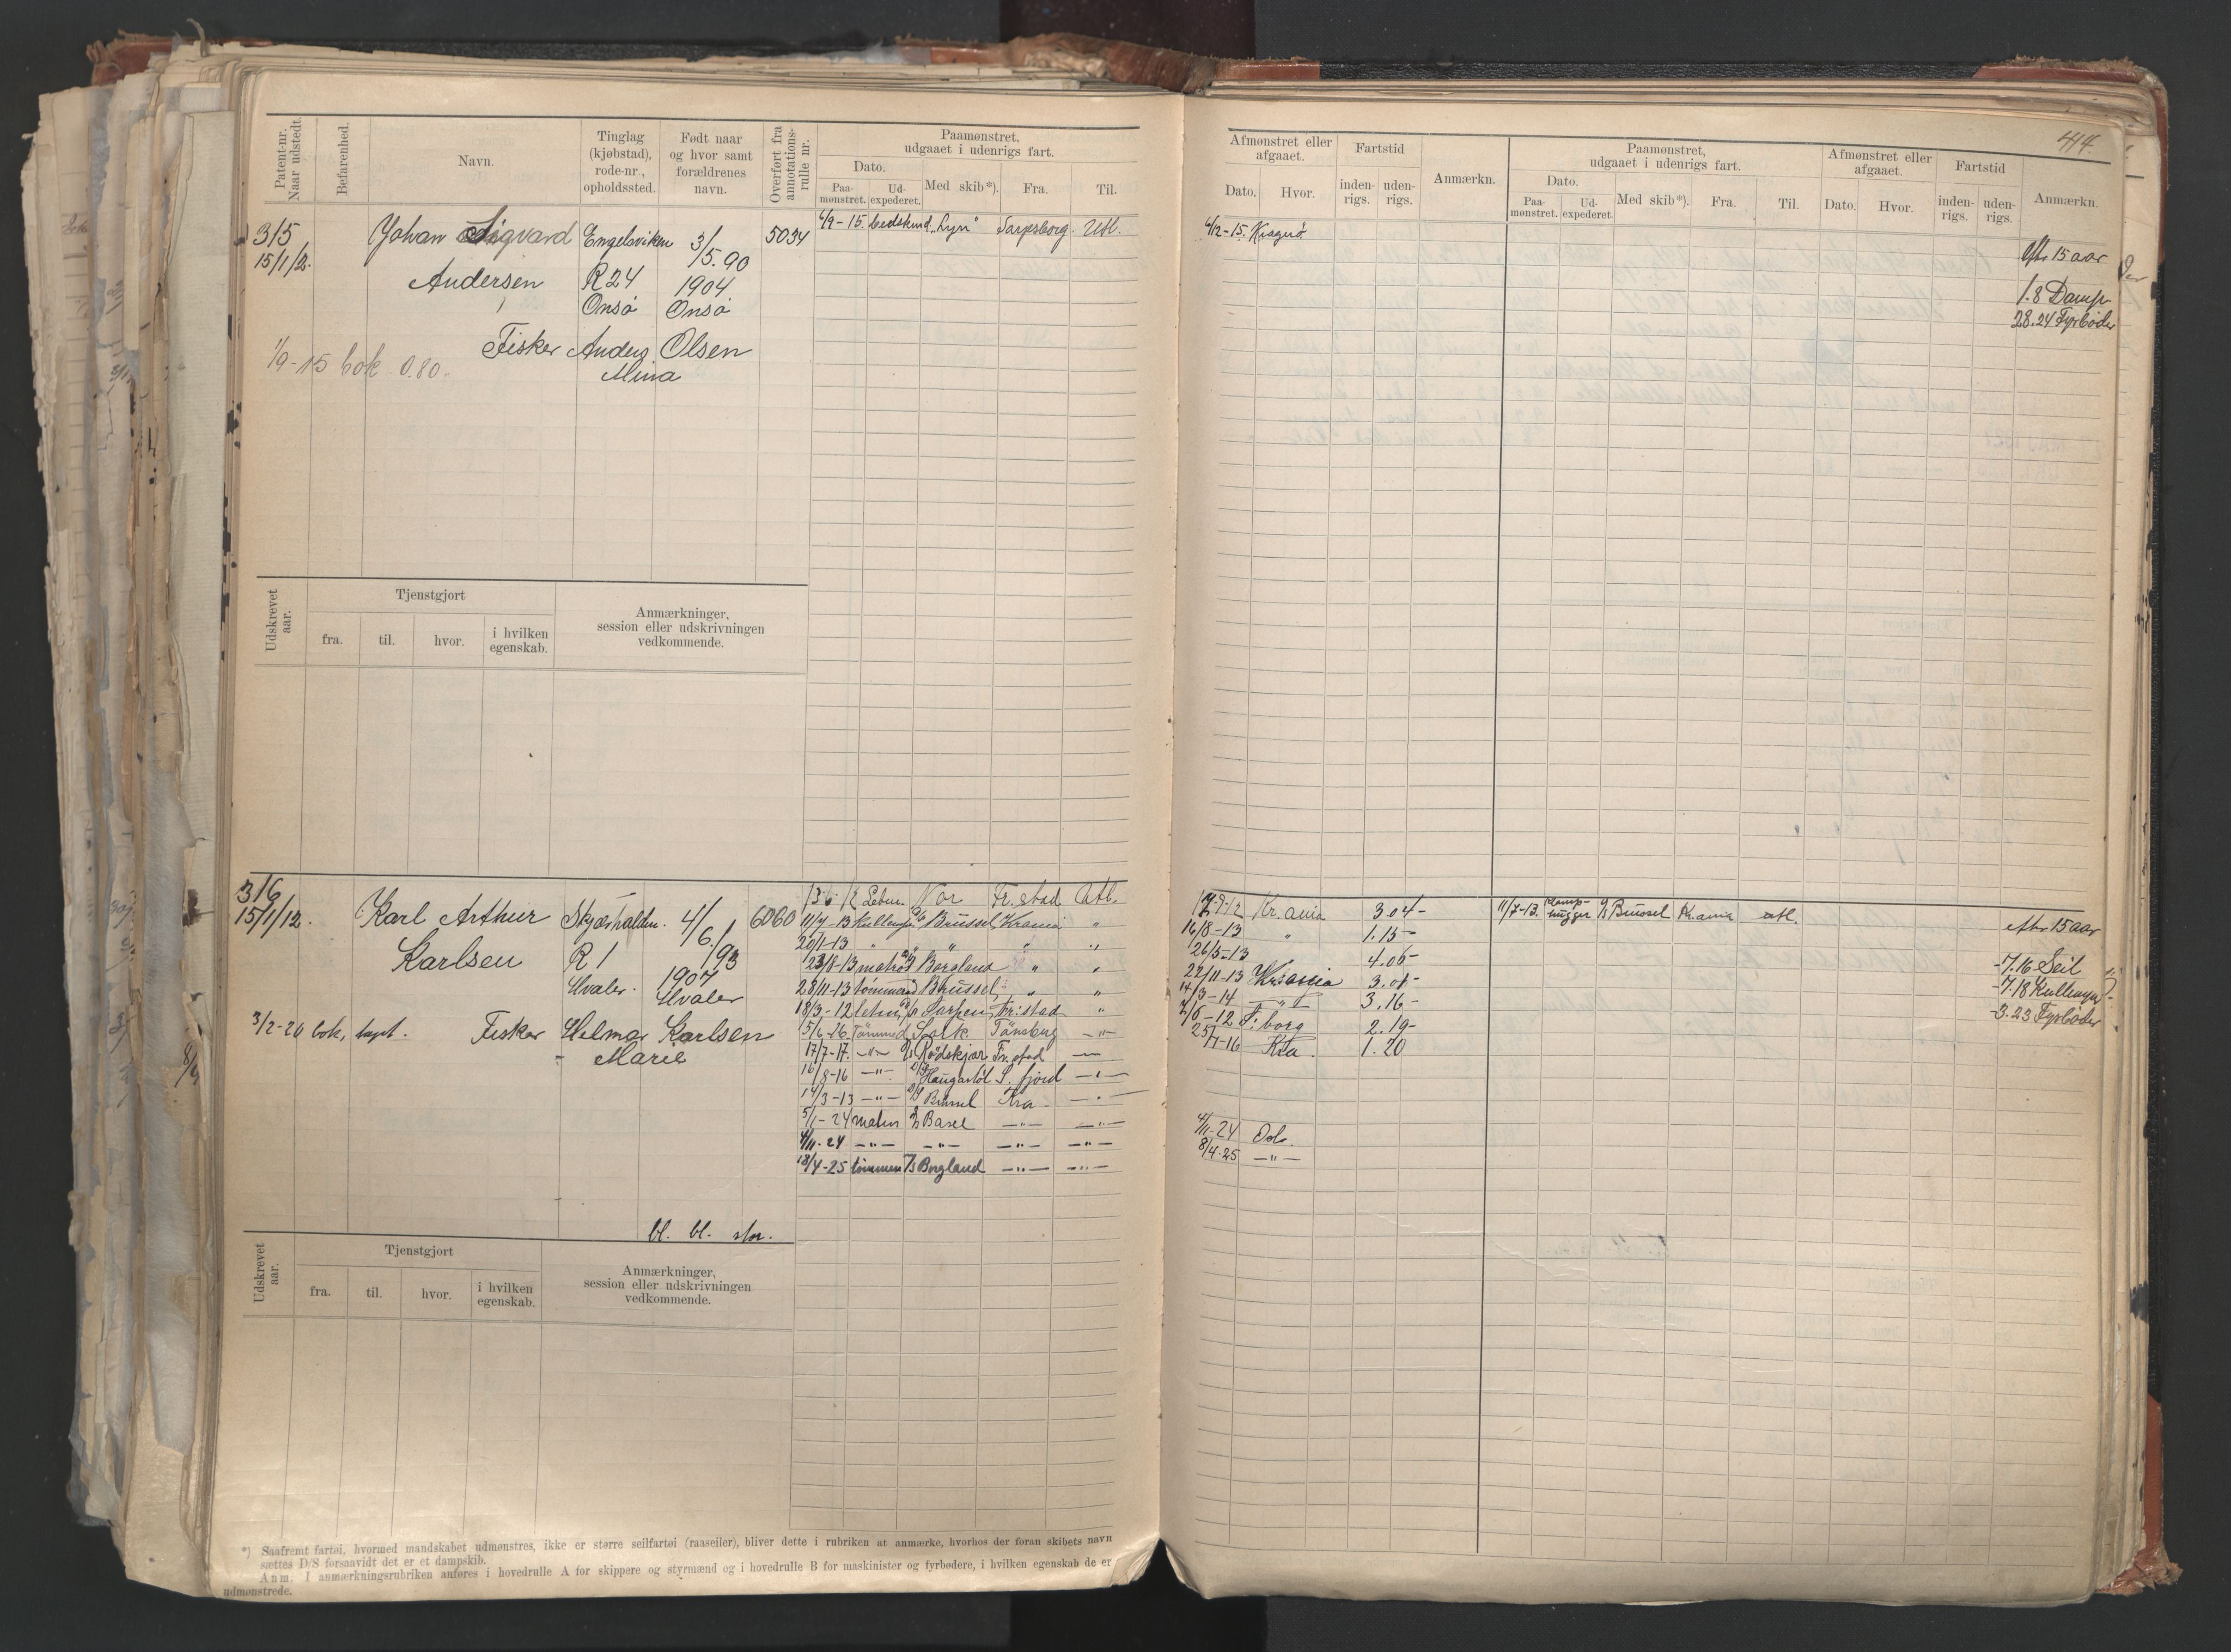 414.
Patent-nr. Naar udstedt.
Befarenhed.
Navn.
Tinglag (kjøbstad), rode-nr., opholdssted.
Født naar og hvor samt forældrenes navn.
Overført fra annotations-rulle nr.
Paamønstret, udgaaet i udenrigs fart.
Dato.
Paa-mønstret.
Ud-expederet.
Med skib*).
Fra.
Til.
Afmønstret eller afgaaet.
Dato.
Hvor.
Fartstid
inden-rigs.
uden-rigs.
Anmærkn.
Paamønstret, udgaaet i udenrigs fart.
Dato.
Paa-mønstret.
Ud-expederet.
Med skib*).
Fra.
Til.
Afmønstret eller afgaaet.
Dato.
Hvor.
Fartstid
inden-rigs.
uden-rigs.
Anmærkn.
315 Johan Sigvard Engelsviken 3/5.90 5034 4/9-15. bedstmd "Lyn" Sarpsborg Utl. 4/12-15. Kragerö
15/1/12. Andersen R24 1904 eftr 15 aar
Onsö Onsö 1.8 Damp
28.24 Fyrböder
Fisker Anders Olsen
Mina
1/9-15 bok 0.80.
Udskrevet aar.
Tjenstgjort
fra.
til.
hvor.
i hvilken egenskab.
Anmærkninger, session eller udskrivningen vedkommende.
316
15/1/12. Karl Arthur Skjærhalden 4/6/93 6060
Karlsen R1 1907
Hvaler Hvaler
3/2-20 bok, tapt. Fisker Helmar Karlsen
- Marie
Nor Fr.stad Utl.
11/7-13 Brüssel Krania "
20/1-13 " " " "
23/8-13 matros Borgland " "
28/11-13 tømmermd Brüssel " "
18/3-12 Sarpen Fr:stad "
5/6-26 Tømmermd Tönsberg -"-
17/7-17. -"- Rödskjær Fr.stad -"-
16/8-16 -"- Haugastöl S. fjord -"-
14/3-13 -"- Brüssel Kra -"-
5/1-24 matr Basel -"- -"-
4/11-24 -"- -"- -"- -"-
18/4-25 tömmerm Borgland -"- -"-
Kr.ania 3.04-
16/8-13 " 1.15-
26/5-13 4.06-
22/11-13 Krania 3.01-
14/3-14 -"- 3.16-
2/6-12 F:borg 2.19-
25/7-16 Kra. 1.20
4/11-24 Oslo.
8/4-25 -"-
11/7-13. Brüssel Kr.ania utl.
eftr 15 aar
-7.16 Seil
-7.18 Kullemper
-3.23 Fyrböder
bl. bl. stor.
Udskrevet aar.
Tjenstgjort
fra.
til.
hvor.
i hvilken egenskab.
Anmærkninger, session eller udskrivningen vedkommende.
*) Saafremt fartøi, hvormed mandskabet udmønstres, ikke er større seilfartøi (raaseiler), bliver dette i rubriken at anmærke, hvorhos der foran skibets navn
sættes D/S forsaavidt det er et dampskib.
Anm. I anmærkningsrubriken anføres i hovedrulle A for skippere og styrmænd og i hovedrulle B for maskinister og fyrbødere, i hvilken egenskab de er
udmønstrede.